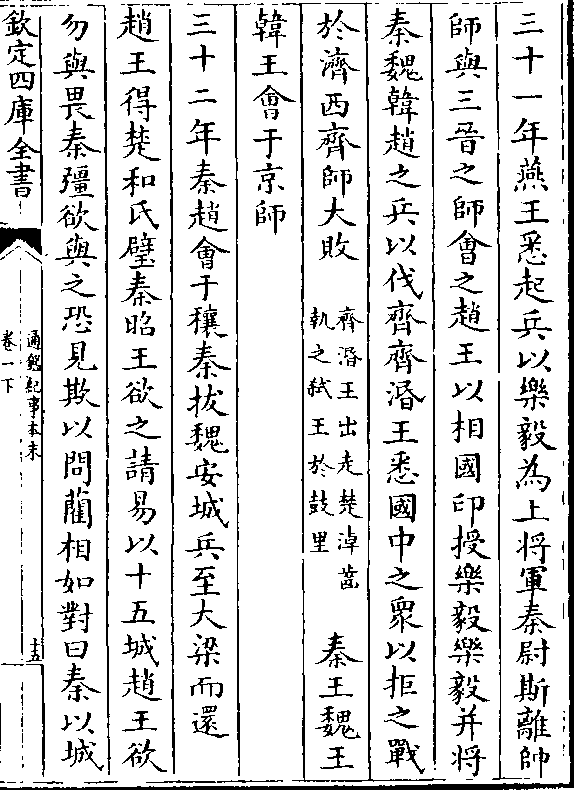 三十一年燕王悉起兵以樂毅為上將軍秦尉斯離帥
師與三晉之師會之趙王以相國印授樂毅樂毅并將
秦魏韓趙之兵以伐齊齊湣王悉國中之眾以拒之戰
於濟西齊師大敗
齊湣王出走楚淖齒
執之弑王於鼓里
秦王魏王
韓王會于京師
三十二年秦趙會于穰秦拔魏安城兵至大梁而還
趙王得楚和氏璧秦昭王欲之請易以十五城趙王欲
勿與畏秦彊欲與之恐見欺以問藺相如對曰秦以城
欽定四庫全書
通鑑紀事本末
卷一下
十五